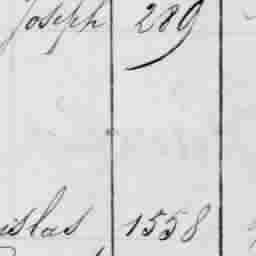 Joseph 289
islas 1558